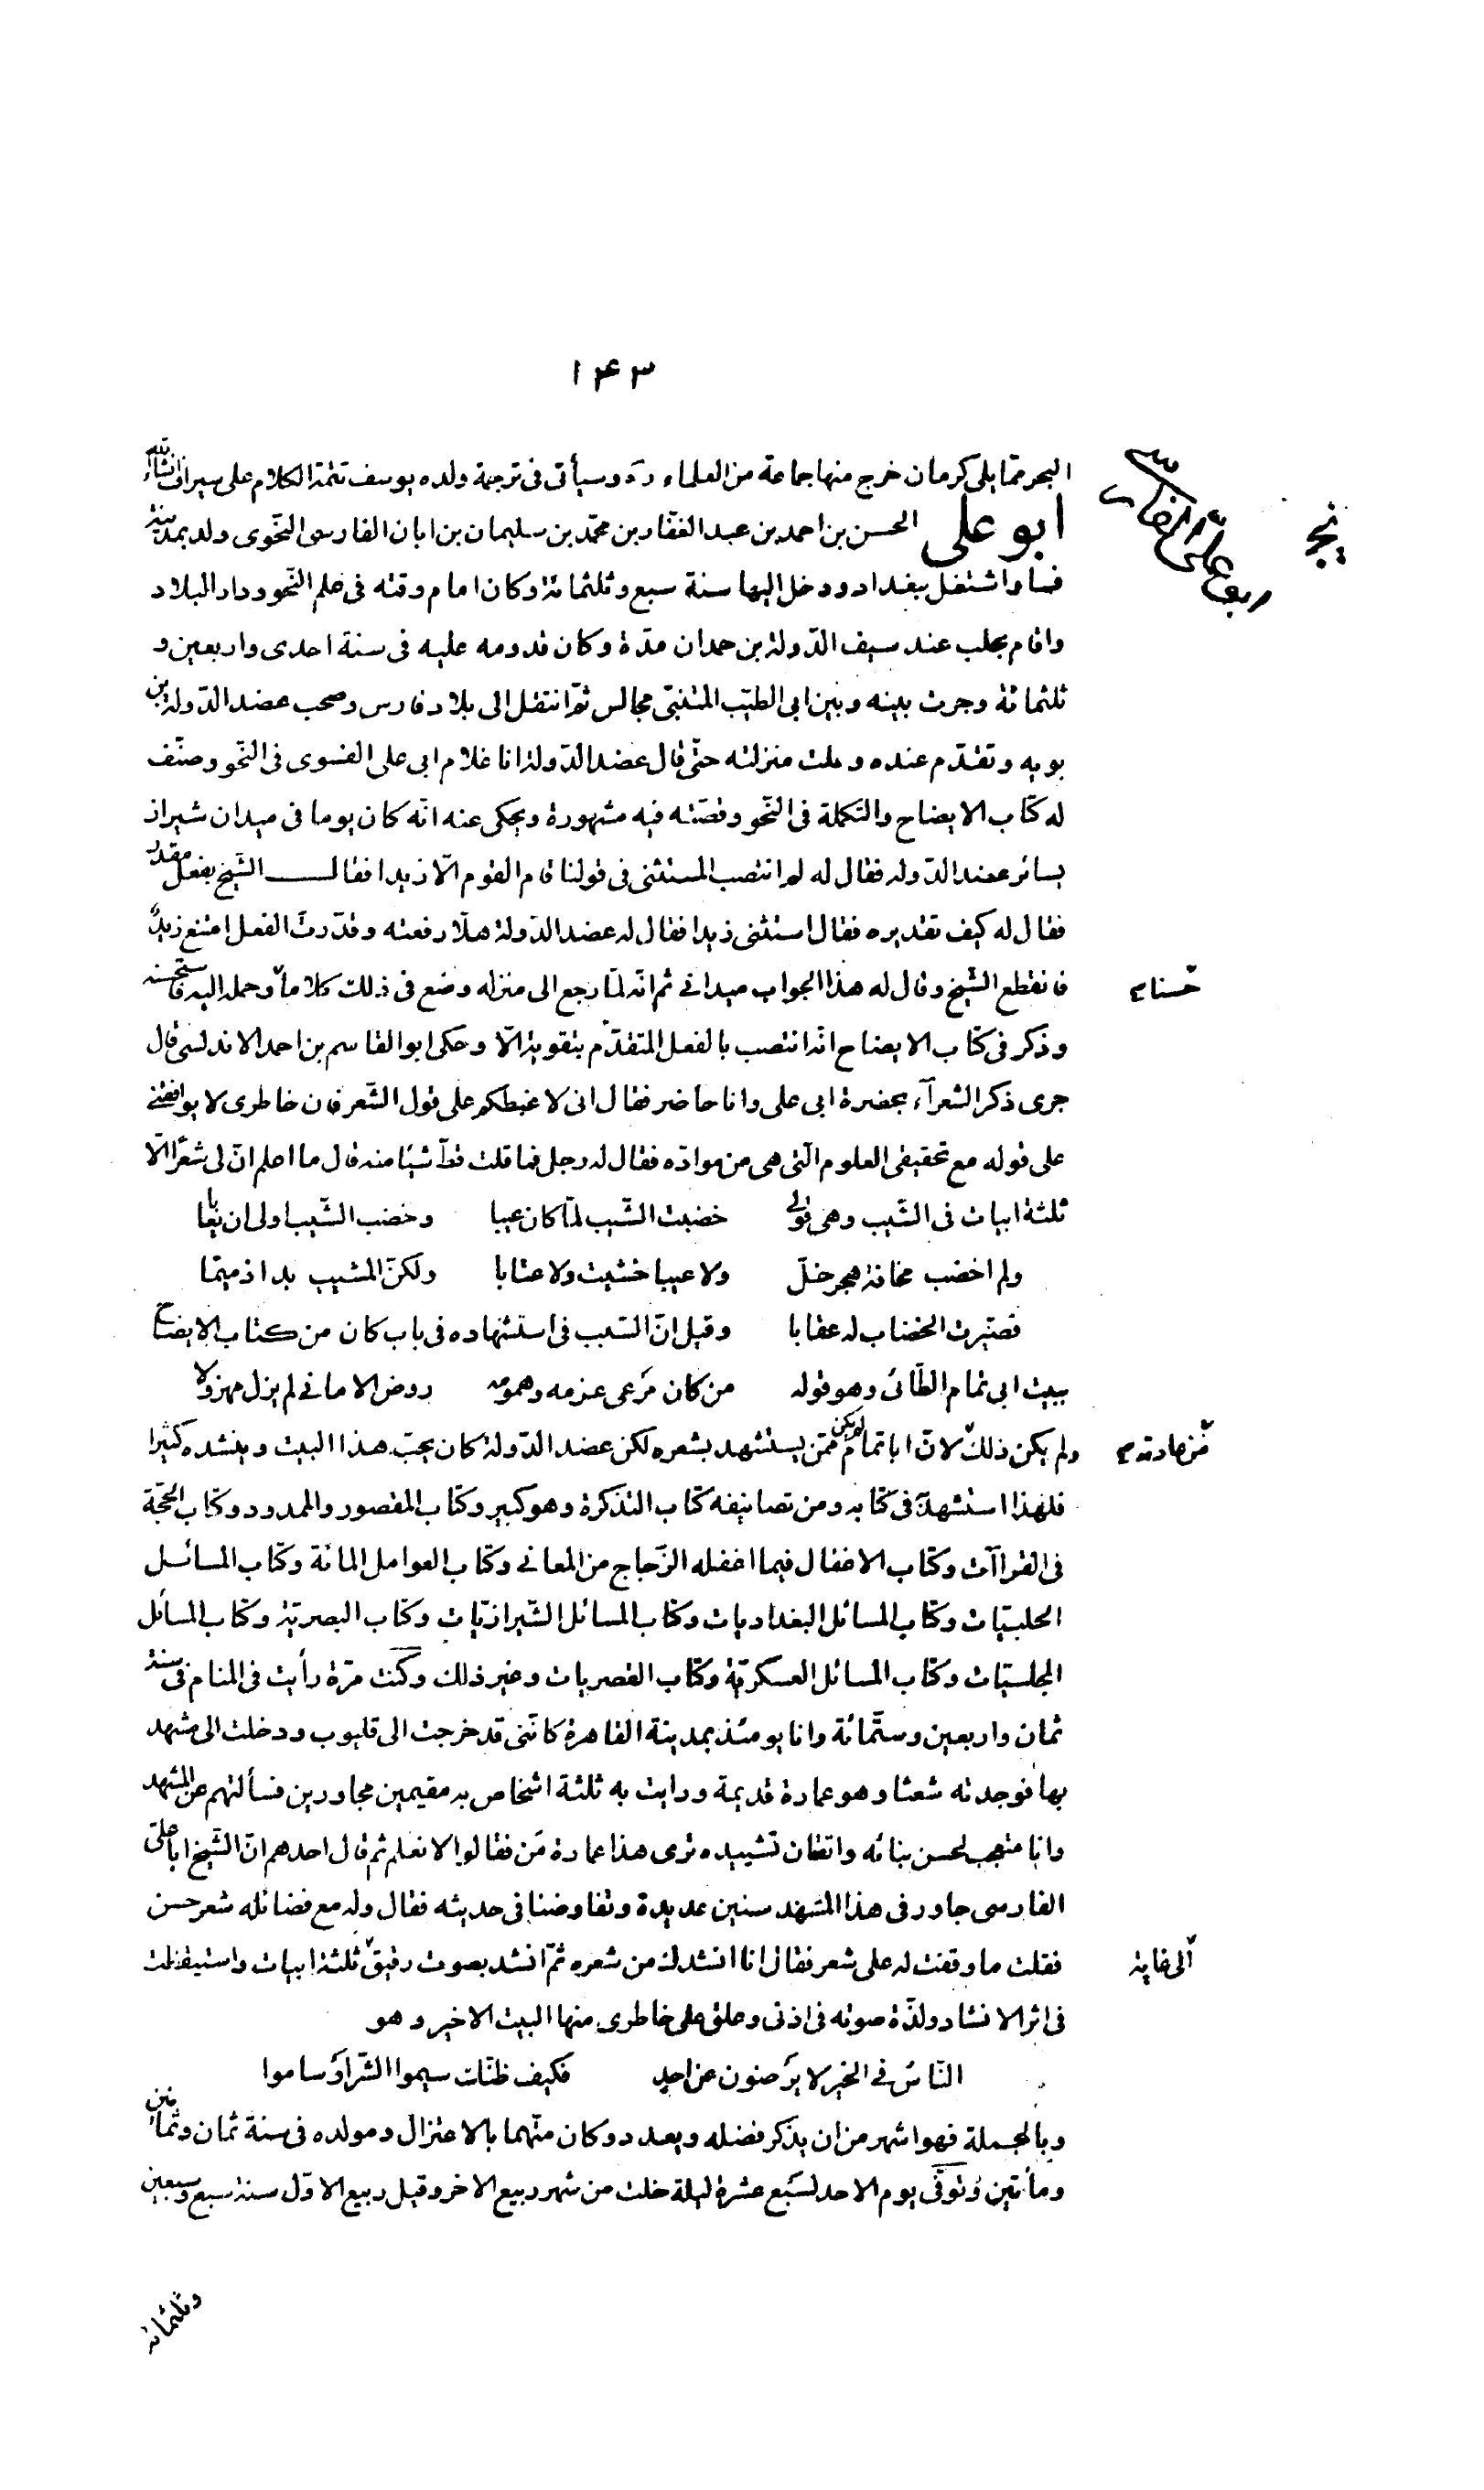 ١۴٣
البحر مما يلى كرمان خرج منها جماعة من العلماء ره وسيأتى فى ترجمة ولده يوسف تتمة الكلام على سيراف انشاء الله
ابو على الحسن بن احمد بن عبد الغفار بن محمد بن سليمان بن ابان الفارسى النحوى ولد بمدينة
ابو على الفارسى
فسا واشتغل ببغداد ودخل اليها سنة سبع وثلثمائة وكان امام وقته فى علم النحو ودار البلاد
واقام بحلب عند سيف الدولة بن حمدان مدة وكان قدومه عليه فى سنة احدى واربعين و
ثلثمائة وجرت بينه وبين ابى الطيب المتنبى مجالس ثم انتقل الى بلاد فارس وصحب عضد الدولة بن
بويه وتقدم عنده وعلت منزلته حتى قال عضد الدولة انا غلام ابى على الفسوى فى النحو وصنف
له كتاب الايضاح والتكملة فى النحو وقصته فيه مشهورة ويحكى عنه انه كان يوما فى ميدان شيراز
يسائر عضد الدوله فقال له لم انتصب المستثنى فى قولنا قام القوم الا زيدا فقال الشيخ بفعل مقدر
فقال له كيف تقديره فقال استثنى زيدا فقال له عضد الدولة هلا رفعته وقدرت الفعل امتنع زيدٌ
فانقطع الشيخ وقال له هذا الجواب ميدانى ثم انه لما رجع الى منزله وضع فى ذلك كلاما وحمله اليه فاستحسنه
حسنا م
وذكر فى كتاب الايضاح انه انتصب بالفعل المتقدم بتقوية الا وحكى ابو القاسم بن احمد الاندلسى قال
جرى ذكر الشعرآء بحضرة ابى على وانا حاضر فقال انى لا غبطكم على قول الشعر فان خاطرى لا يوافقنى
على قوله مع تحقيقى العلوم التى هى من موادّه فقال له رجل فما قلت قط شيئا منه قال ما اعلم ان لى شعرا الا
ثلثة ابيات فى الشيب وهى قولى خضبت الشيب لما كان عيبا وخضب الشيب اولى ان يعابا
ولم اخضب مخافة هجر خل ولا عيبا خشيت ولا عتابا ولكن المشيب بدا ذميما
فصيرت الخضاب له عقابا وقيل ان السبب فى استشهاده فى باب كان من كتاب الايضاح
ببيت ابى تمام الطائى وهو قوله من كان مرعى عزمه وهمومه روض الامانى لم يزل مهزولا
ولم يكن ذلك لان ابا تمام لم يكن ممن يستشهد بشعره لكن عضد الدولة كان يحب هذا البيت وينشده كثيرا
فلهذا استشهد فى كتابه ومن تصانيفه كتاب التذكرة وهو كبير وكتاب المقصور والممدود وكتاب الحجة
فى القراآت وكتاب الاغفال فيما اغفله الزجاج من المعانى وكتاب العوامل المائة وكتاب المسائل
الحلبيات وكتاب المسائل البغداديات وكتاب المسائل الشيرازيات وكتاب البصرية وكتاب المسائل
المجلسيات وكتاب المسائل العسكرية وكتاب القصريات وغير ذلك وكنت مرة رأيت فى المنام فى سنة
ثمان واربعين وستمائة وانا يومئذ بمدينة القاهرة كاننى قد خرجت الى قليوب ودخلت الى مشهد
بها فوجدته شعثا وهو عمارة قديمة ورايت به ثلثة اشخاص به مقيمين مجاورين فسألتهم عن المشهد
وانا متعجب لحسن بنائه واتقان تشييده ترى هذا عمارة من فقالوا لا نعلم ثم قال احدهم ان الشيخ ابا على
الفارسى جاور فى هذا المشهد سنين عديدة وتفاوضنا فى حديثه فقال وله مع فضائله شعر حسن
فقلت ما وقفت له على شعر فقال انا انشدك من شعره ثم انشد بصوت رقيق ثلثة ابيات واستيقظت
الى غاية
فى اثر الانشاد ولذة صوته فى اذنى وعلق على خاطرى منها البيت الاخير وهو
الناس فى الخير لا يرضون عن احد فكيف ظنك سيموا الشر او ساموا
وبالجملة فهو اشهر من ان يذكر فضله ويعدد وكان متهما بالاعتزال ومولده فى سنة ثمان وثمانين
ومأتين وتوفى يوم الاحد لسبع عشرة ليلة خلت من شهر ربيع الاخر وقيل ربيع الاول سنة سبع وسبعين
وثلثمائة